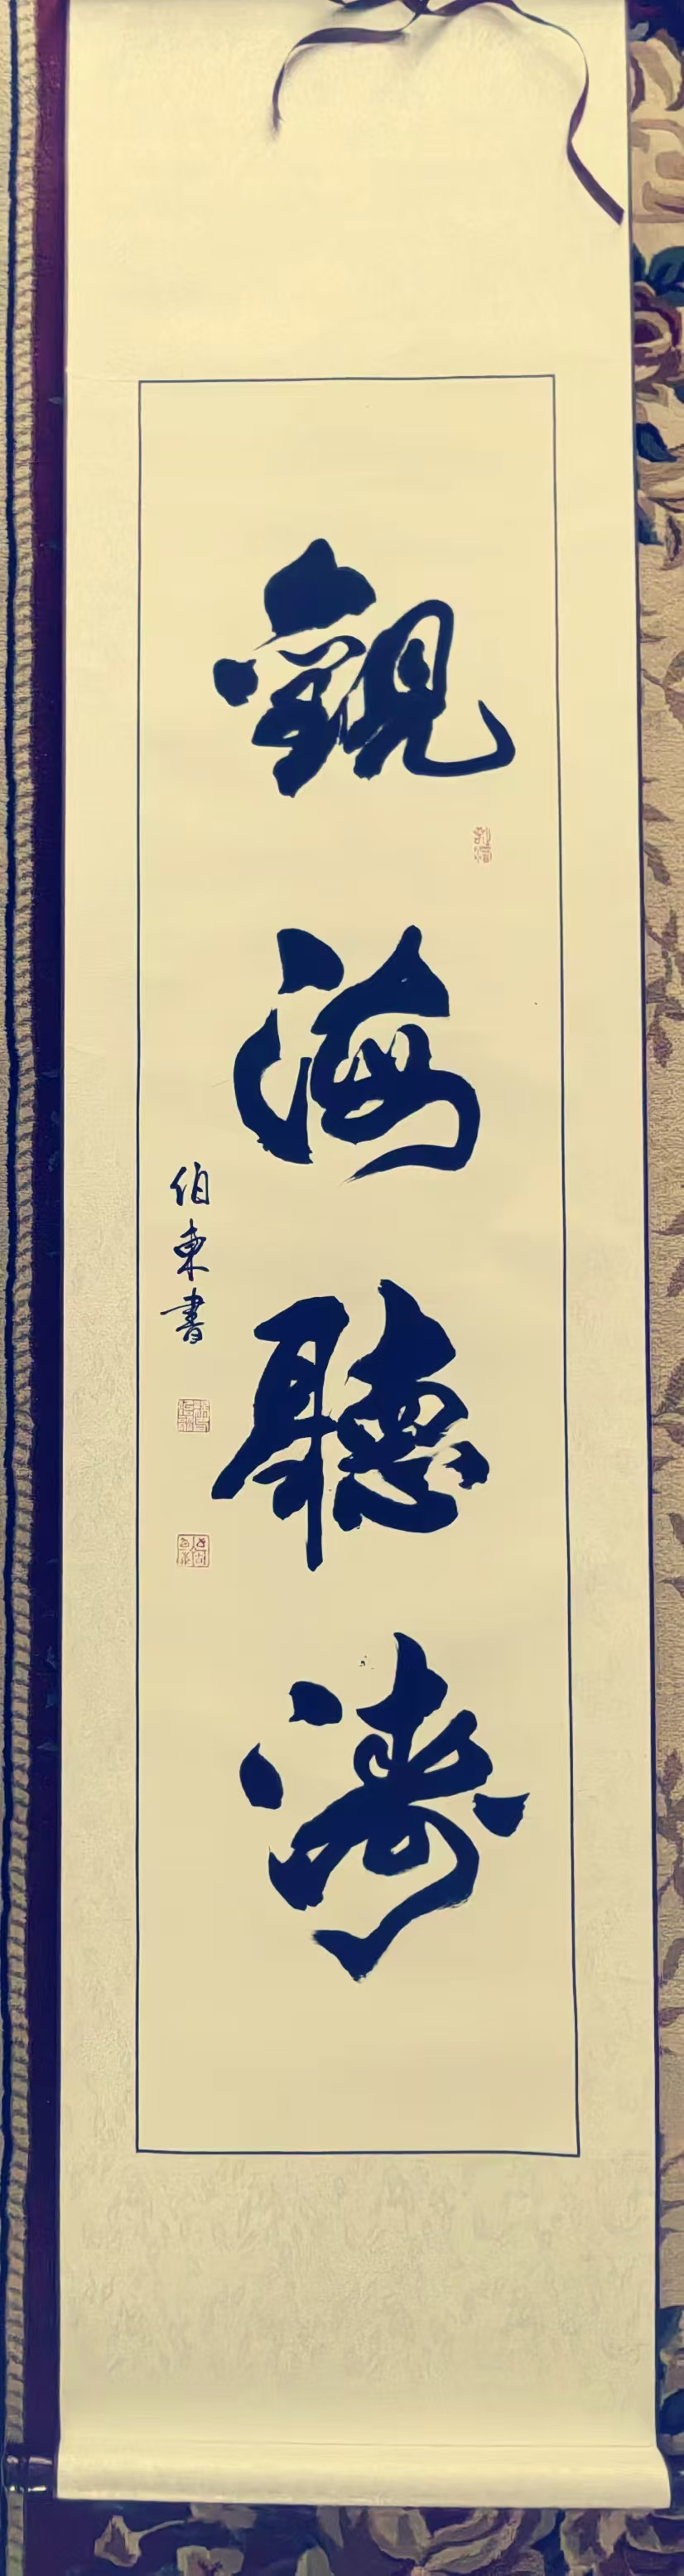 觀海聽濤
伯東書